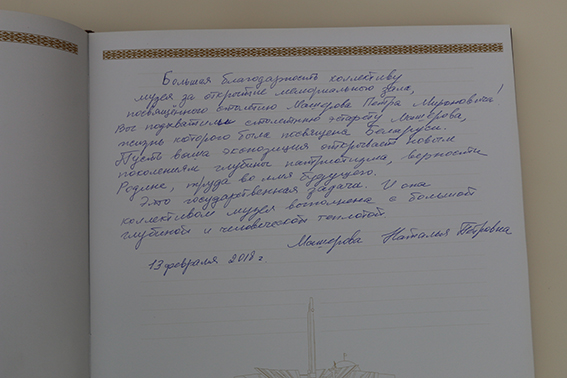 Большая благодарность коллективу
музея за открытие мемориального зала,
посвященного столетию Машерова Петра Мироновича!
Вы подхватили столетнюю эстафету Машерова,
жизнь которого была посвящена Беларуси.
Пусть ваша экспозиция открывает новым
поколениям глубины патриотизма, верности
Родине, труда во имя будущего.
Это государственная задача. И она
коллективом музея восполнена с большой
глубиной и человеческой теплотой
Машерова Наталья Петровна
13 февраля 2018 г